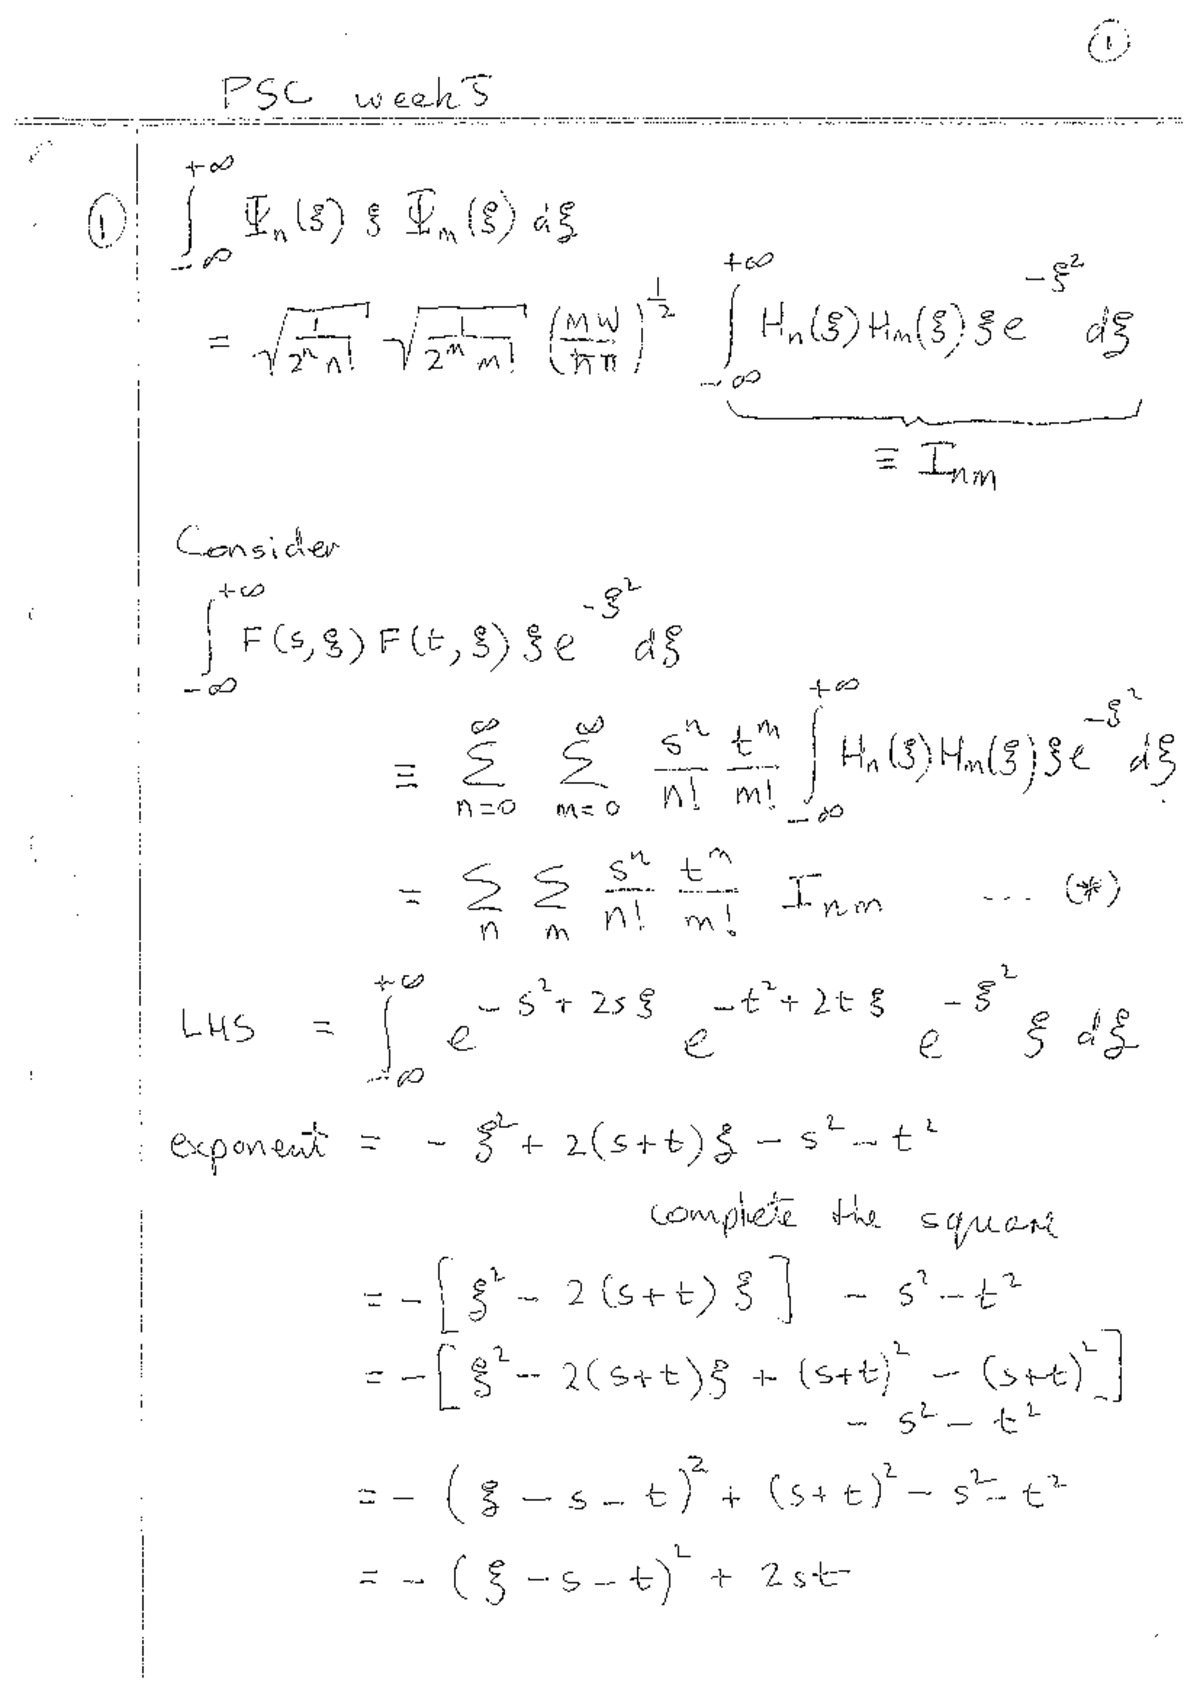 ①
PSC week 5
① ∫_{-∞}^{+∞} Ψ_n(ξ) ξ Ψ_m(ξ) dξ
= √(1/(2^n n!)) √(1/(2^m m!)) (mω/(ħπ))^{1/2} ∫_{-∞}^{+∞} H_n(ξ) H_m(ξ) ξ e^{-ξ²} dξ
≡ I_{nm}
Consider
∫_{-∞}^{+∞} F(s,ξ) F(t,ξ) ξ e^{-ξ²} dξ
≡ Σ_{n=0}^{∞} Σ_{m=0}^{∞} s^n/n! t^m/m! ∫_{-∞}^{+∞} H_n(ξ) H_m(ξ) ξ e^{-ξ²} dξ
= Σ_n Σ_m s^n/n! t^m/m! I_{nm} ... (*)
LHS = ∫_{-∞}^{+∞} e^{-s²+2sξ} e^{-t²+2tξ} e^{-ξ²} ξ dξ
exponent = -ξ² + 2(s+t)ξ - s² - t²
complete the square
= -[ξ² - 2(s+t)ξ] - s² - t²
= -[ξ² - 2(s+t)ξ + (s+t)² - (s+t)²]
- s² - t²
= -(ξ - s - t)² + (s+t)² - s² - t²
= -(ξ - s - t)² + 2st